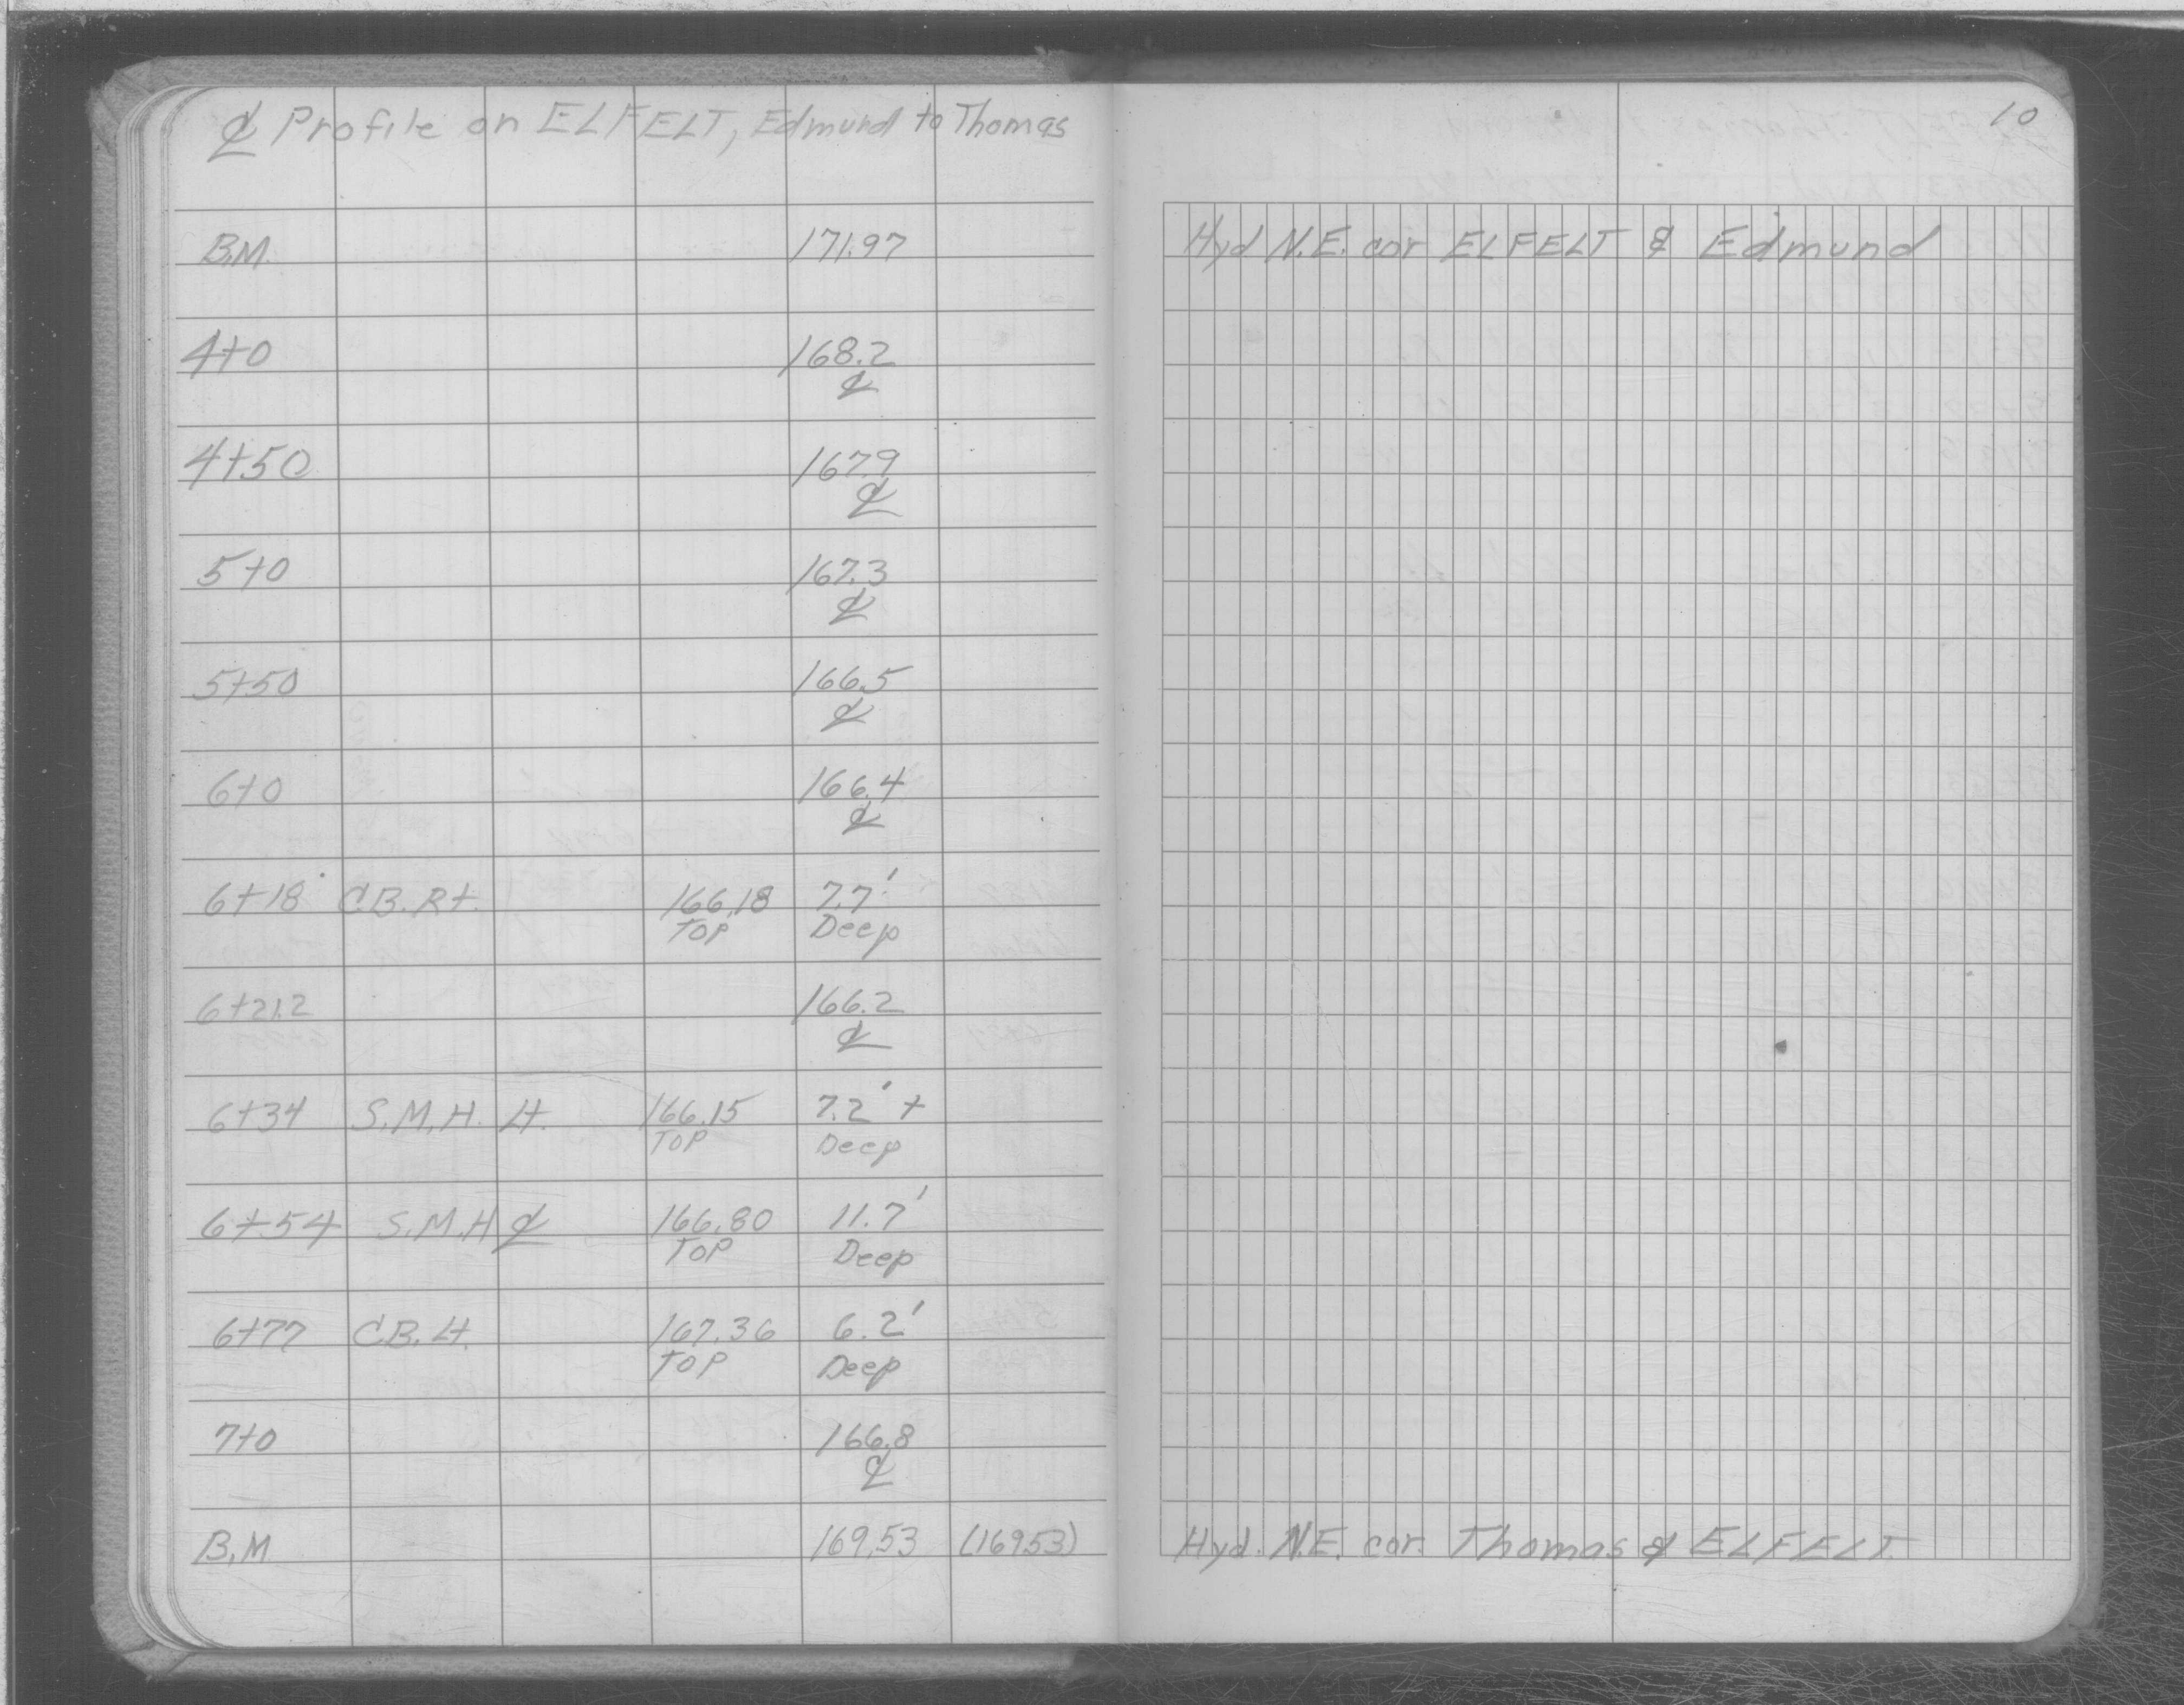 ℄ Profile on ELFELT, Edmund to Thomas
10
B.M. 171.97 Hyd N.E. cor ELFELT & Edmund
4+0 168.2
℄
4+50 167.9
℄
5+0 167.3
℄
5+50 166.5
℄
6+0 166.4
℄
6+18 C.B. Rt. 166.18 7.7'
TOP Deep
6+21.2 166.2
℄
6+34 S.M.H. Lt. 166.15 7.2' +
TOP Deep
6+54 S.M.H ℄ 166.80 11.7'
TOP Deep
6+77 C.B. Lt. 167.36 6.2'
TOP Deep
7+0 166.8
℄
B.M 169.53 (169.53) Hyd. N.E. cor. Thomas & ELFELT.